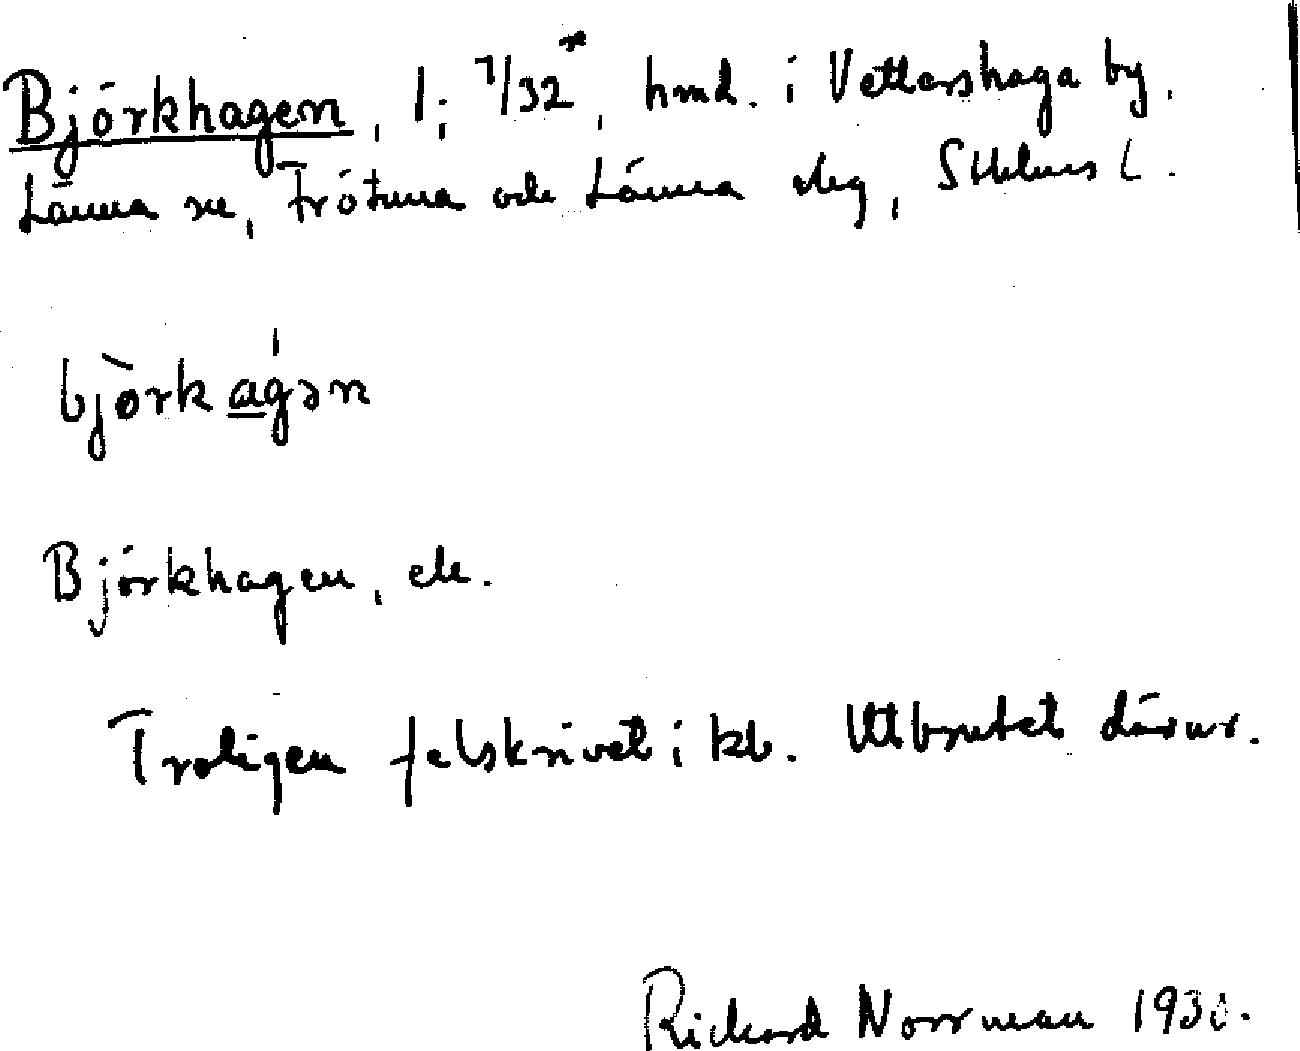 Björkhagen, 1; 7/32*, hmd. i Vettershaga by,
Länna sn, Frötuna och Länna slg, Sthlms l.
bjòrkagən
Björkhagen, ele.
Troligen felskrivet i kb. Utbrutet därur.
Rickard Norrman 1930.